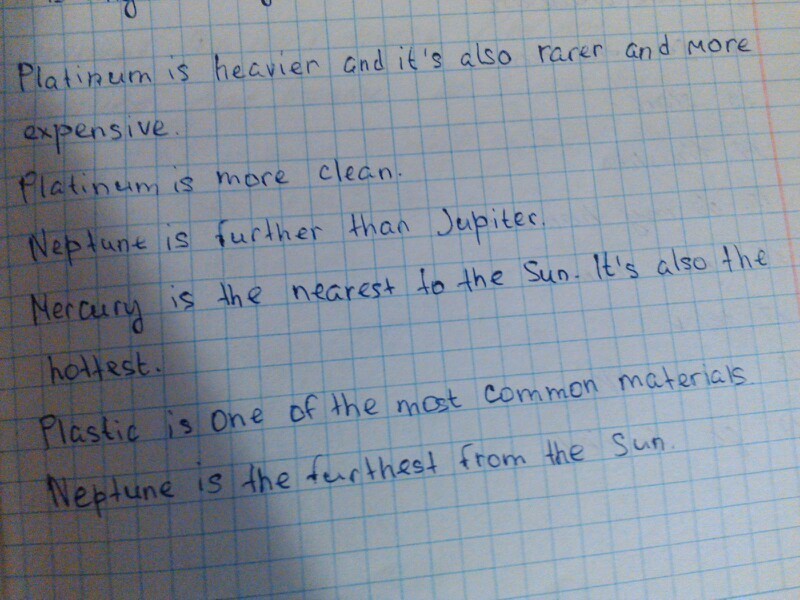 Platinum is heavier and it's also rarer and more
expensive.
Platinum is more clean.
Neptune is further than Jupiter.
Mercury is the nearest to the Sun. It's also the
hottest.
Plastic is one of the most common materials.
Neptune is the furthest from the Sun.